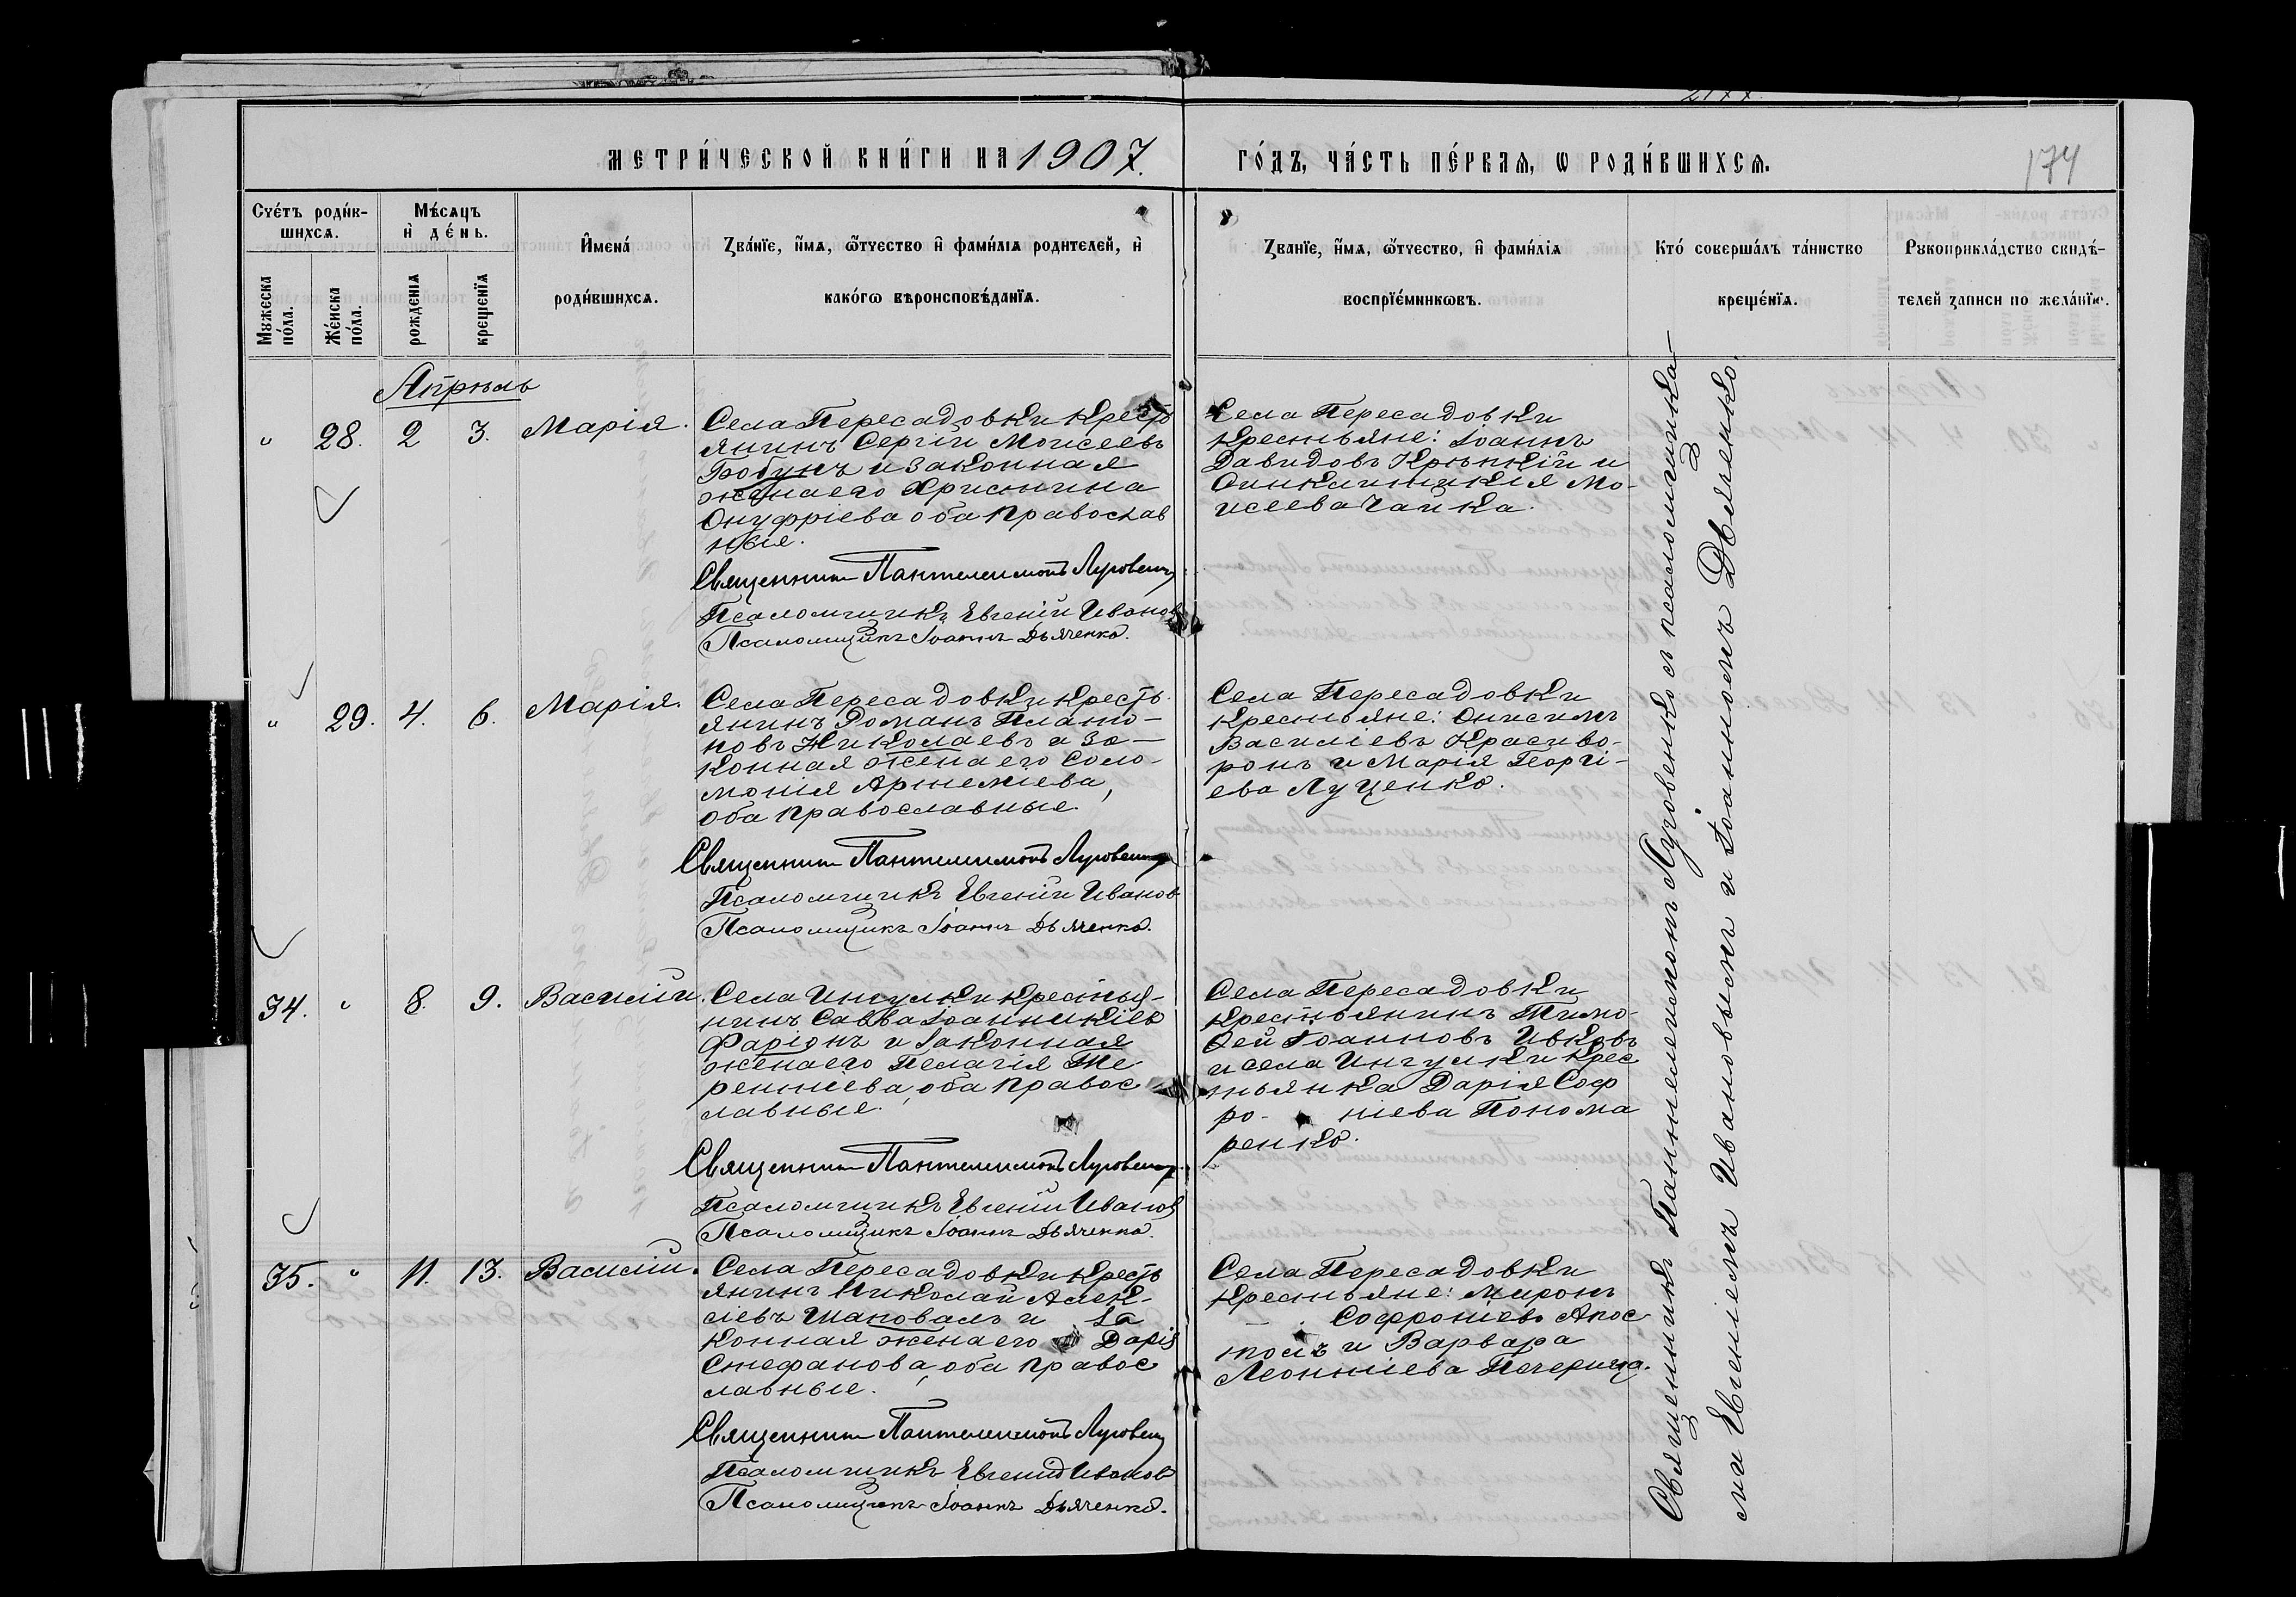 МЕТРИ́ЧЕСКОЙ КНИ́ГИ НА 1907.
ГО́ДЪ, ЧА́СТЬ ПЕ́РВАЯ, Ѡ РОДИ́ВШИХСѦ.
174
Сче́тъ роди́в-
шихсѧ.
Мꙋжеска по́ла.
Же́нска по́ла.
Мѣ́сѧцъ
и҆ де́нь.
рожденїѧ
креще́нїѧ
И҆мена́
роди́вшихсѧ.
Зва́нїе, и҆́мѧ, ѻ҆́тчество и҆ фамі́лїѧ родителей, и҆
како́гѡ вѣроисповѣ́данїѧ.
Зва́нїе, и҆́мѧ, ѻ҆́тчество, и҆ фамі́лїѧ
воспрїе́мниковъ.
Кто́ соверша́лъ та́инство
креще́нїѧ.
Рꙋкоприкла́дство свидѣ́-
телей записи по жела́нїю.
Апрѣль
" 28. 2 3. Марія.
Села Пересадовки кресть
янинъ Сергій Моисеевъ
Бобунъ и законная
жена его Христина
Онуфріева оба православ
ные.
Священникъ Пантелеимонъ Луговенко
Псаломщикъ Евгеній Иванов
Псаломщикъ Іоаннъ Дьяченко.
Села Пересадовки
крестьяне: Іоаннъ
Давидовъ Крѣпкій и
Синклитикія Мо-
исеева Чайка.
" 29. 4. 6. Марія.
Села Пересадовки кресть
янинъ Романъ Плато-
новъ Николаевъ и за-
конная жена его Соло-
монія Артеміева,
оба православные.
Священникъ Пантелеимонъ Луговенко
Псаломщикъ Евгеній Иванов
Псаломщикъ Іоаннъ Дьяченко.
Села Пересадовки
крестьяне: Онисимъ
Василіевъ Красиво-
ронъ и Марія Георгі-
ева Луценко.
34. " 8. 9. Василій.
Села Ингулки крестья-
нинъ Савва Іоанникіев
Фаріонъ и законная
жена его Пелагія Те
рентіева, оба правос
лавные.
Священникъ Пантелеимонъ Луговенко
Псаломщикъ Евгеній Иванов
Псаломщикъ Іоаннъ Дьяченко.
Села Пересадовки
крестьянинъ Тимо-
ѳей Іоанновъ Ивковъ
и села Ингулки крес
тьянка Дарія Соф
ро- ніева Понома
ренко.
35. " 11. 13. Василій.
Села Пересадовки кресть
янинъ Николай Алек-
сіевъ Шаповалъ и за
конная жена его Дарія
Стефанова, оба правос
лавные.
Священникъ Пантелеимонъ Луговенко
Псаломщикъ Евгеній Иванов
Псаломщикъ Іоаннъ Дьяченко.
Села Пересадовки
крестьяне: Миронъ
Софроніевъ Апос
толъ и Варвара
Леонтіева Печерица.
Священникъ Пантелеимонъ Луговенко съ псаломщика-
ми Евгеніемъ Ивановымъ и Іоанномъ Дьяченко.